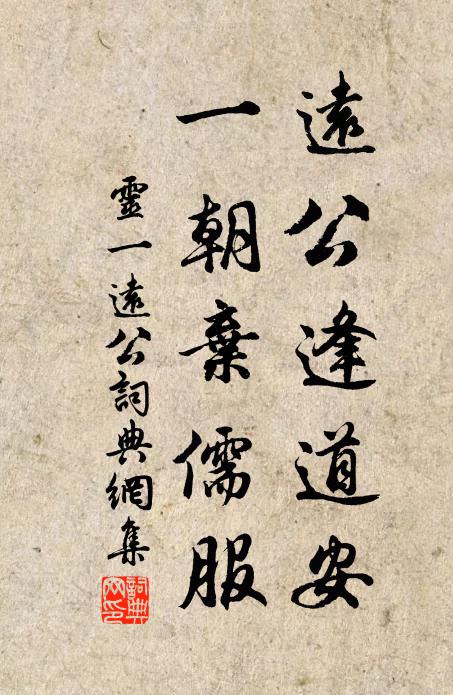 遠公逢道安
一朝棄儒服
靈一遠公詞典網集
詞典网印